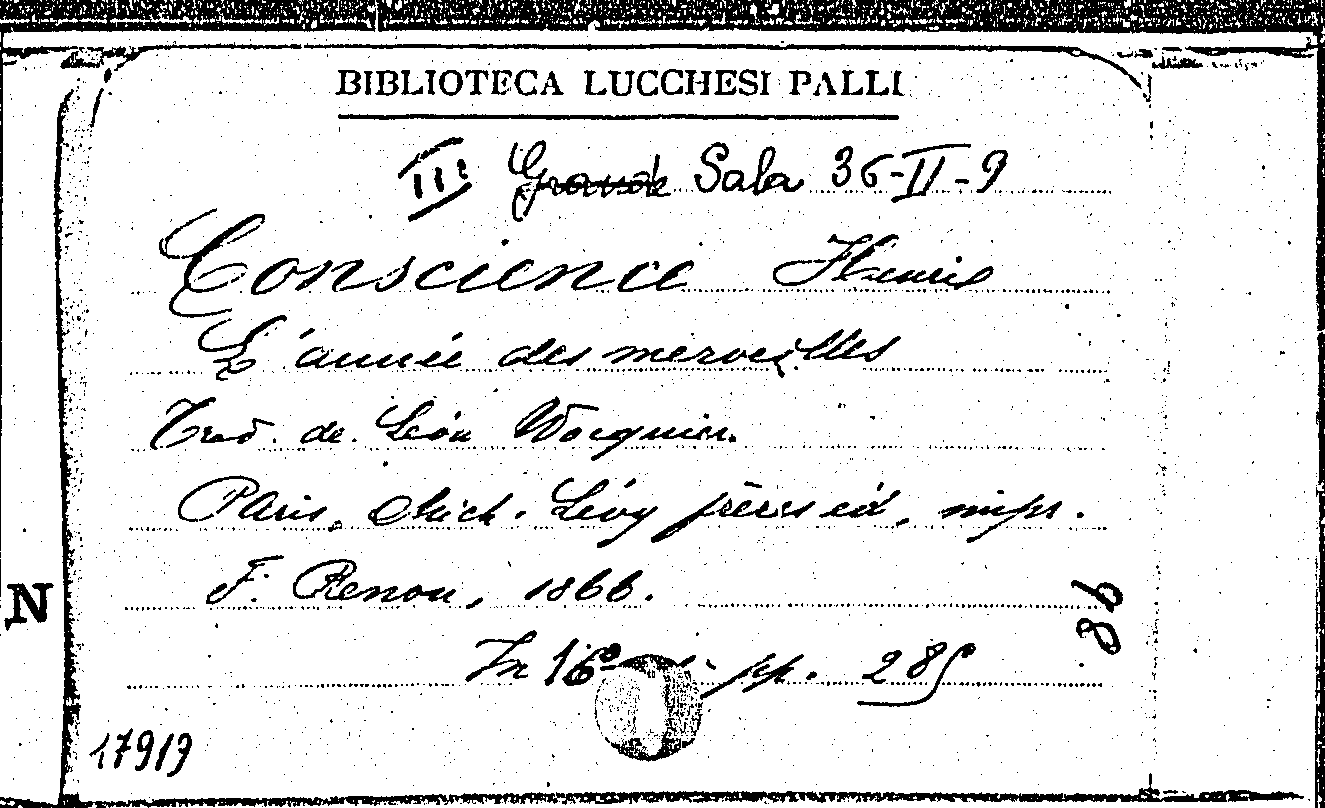 BIBLIOTECA LUCCHESI PALLI
III Grande Sala 36-II-9
Conscience Henri
L'année des merveilles
Trad. de Léon Wocquier.
Paris, Mich. Lévy frères éd., impr.
F. Renou, 1866.
In 16° pp. 285
86
N
17919